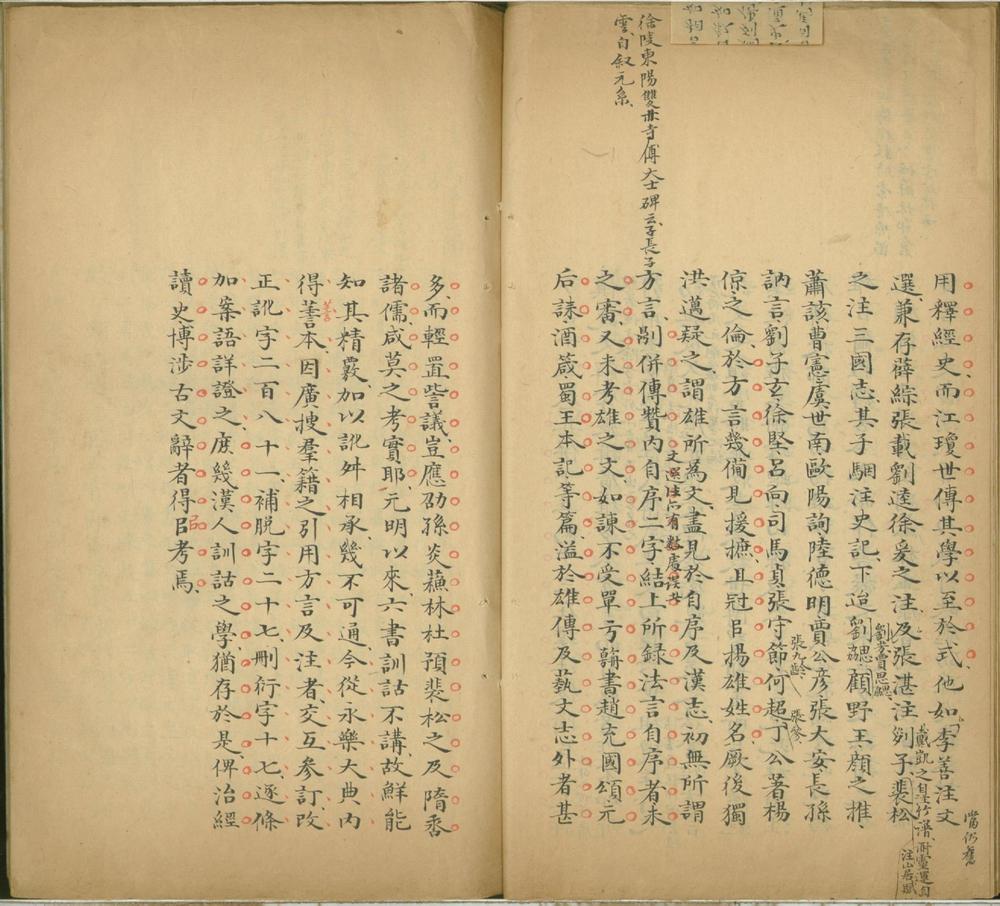 用釋經史而江瓊世傳其學以至於式他如李善注文
選兼存薛綜張載劉逵徐爰之注及張湛注列子裴松
之注三國志其子駰注史記下迨劉勰顧野王顏之推
蕭該曹憲虞世南歐陽詢陸德明賈公彥張大安長孫
訥言劉子玄徐堅呂向司馬貞張守節何超丁公著楊
倞之倫於方言幾備見援摭且冠㠯揚雄姓名厥後獨
洪邁疑之謂雄所為文盡見於自序及漢志初無所謂
方言剮併傳贊內自序二字結上所録法言自序者未
之審又未考雄之文如諫不受單亏朝書趙充國頌元
后誄酒箴蜀王本記等篇溢於雄傳及藝文志外者甚
當仍舊
戴凱之自注竹譜謝靈運自
注山居賦
劉李賈思勰
張九齡
張參
文選注亦有數處
徐陵東陽雙林寺傅大士碑云子長子
雲自叙元系
多而輕置訾議豈應劭孫炎蘇林杜預裴松之及隋唐
諸儒咸莫之考實耶元明以來六書訓詁不講故鮮能
知其精覈加以訛舛相承幾不可通今從永樂大典內
得善本因廣搜羣籍之引用方言及注者交互參訂改
善
正訛字二百八十一補脫字二十七刪衍字十七逐條
加案語詳證之庶幾漢人訓詁之學猶存於是俾治經
讀史博涉古文辭者得㠯考焉
㠯